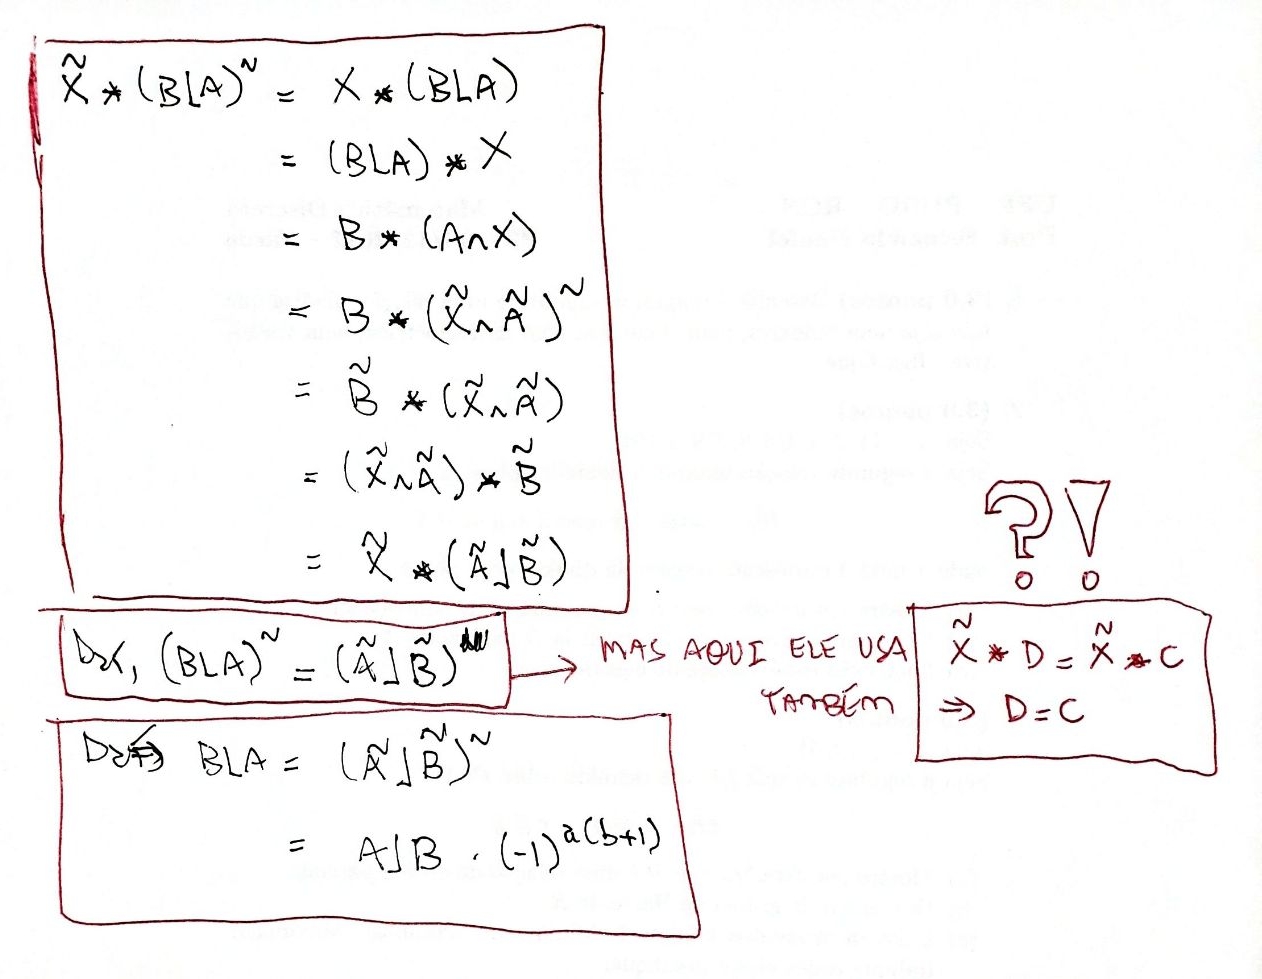 X̃ * (B⌊A)~ = X * (B⌊A)
= (B⌊A) * X
= B * (A∧X)
= B * (X̃∧Ã)~
= B̃ * (X̃∧Ã)
= (X̃∧Ã) * B̃
= X̃ * (Ã⌋B̃)
? !
(B⌊A)~ = (Ã⌋B̃)
MAS AQUI ELE USA
TAMBÉM
X̃ * D = X̃ * C
⇒ D = C
B⌊A = (Ã⌋B̃)~
= A⌋B . (-1)^a(b+1)